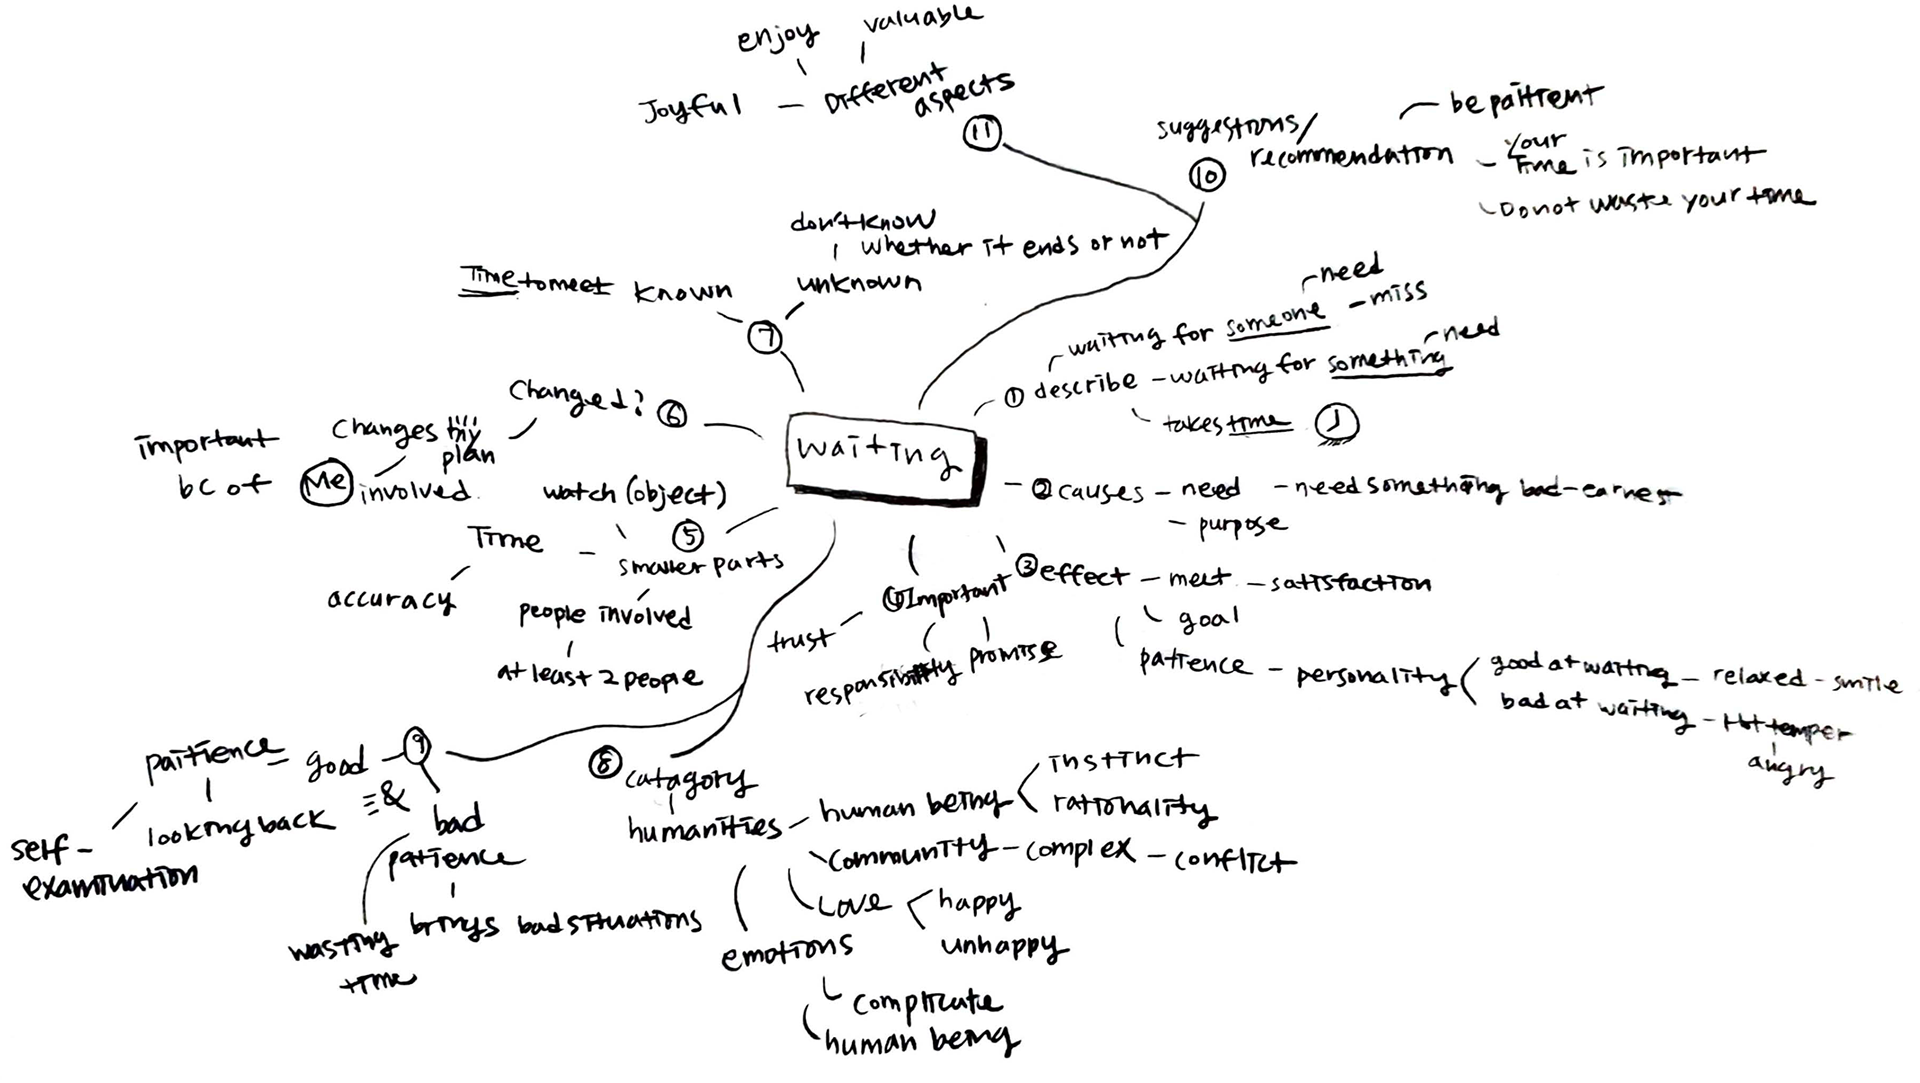 enjoy
valuable
Joyful - Different
aspects
⑪
suggestions/
recommendation
⑩
be paitient
Your
Time is important
Do not waste your time
don't know
whether it ends or not
unknown
Time to meet
known
⑦
waiting for someone
need
miss
① describe - waiting for something
need
takes time
Changed? ⑥
Changes my
plan
important
bc of Me involved.
waiting
② causes - need - need something bad - earnest
- purpose
watch (object)
⑤
Time - smaller parts
accuracy
people involved
at least 2 people
③ effect - meet - satisfaction
goal
patience - personality
good at waiting - relaxed - smile
bad at waiting - Hot temper
angry
④ Important
trust
responsibility
promise
⑨
paitience - good
looking back
self-
examination
&
bad
patience
brings bad situations
wasting
time
⑧ catagory
humanities - human being
instinct
rationality
community - complex - conflict
Love
happy
unhappy
emotions
complicate
human being